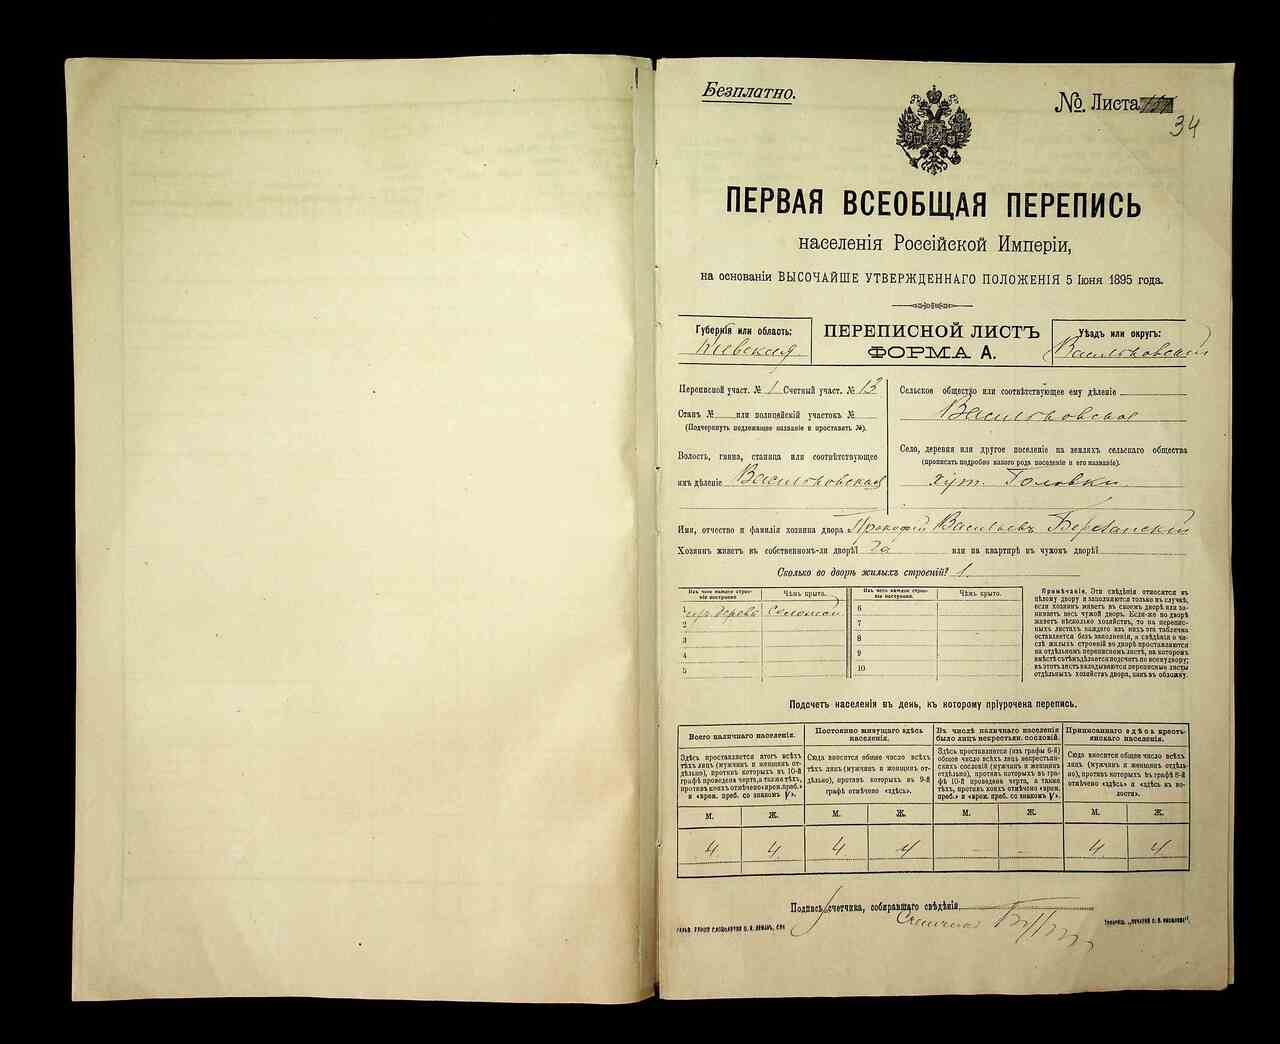 Безплатно.
№. Листа
34
ПЕРВАЯ ВСЕОБЩАЯ ПЕРЕПИСЬ
населенія Россійской Имперіи,
на основаніи ВЫСОЧАЙШЕ УТВЕРЖДЕННАГО ПОЛОЖЕНІЯ 5 Іюня 1895 года.
Губернія или область:
Кіевская
ПЕРЕПИСНОЙ ЛИСТЪ
ФОРМА А.
Уѣздъ или округъ:
Васильковскій
Переписной участ. № 1 Счетный участ. № 13
Станъ № или полицейскій участокъ №
(Подчеркнуть подлежащее названіе и проставить №).
Волость, гмина, станица или соотвѣтствующее
имъ дѣленіе Васильковская
Сельское общество или соотвѣтствующее ему дѣленіе
Васильковское
Село, деревня или другое поселеніе на земляхъ сельскаго общества
(прописать подробно какого рода поселеніе и его названіе).
хут. Головки
Имя, отчество и фамилія хозяина двора Прокофий Васильевъ Березанскій
Хозяинъ живетъ въ собственномъ-ли дворѣ? Да или на квартирѣ въ чужомъ дворѣ?
Сколько во дворѣ жилыхъ строеній? 1.
Изъ чего каждое строеніе построено. Чѣмъ крыто. Изъ чего каждое строеніе построено. Чѣмъ крыто.
1 дерева соломой 6
2 7
3 8
4 9
5 10
Примѣчаніе. Эти свѣдѣнія относятся къ
цѣлому двору и заполняются только въ случаѣ,
если хозяинъ живетъ въ своемъ дворѣ или занимаетъ
весь чужой дворъ. Если-же во дворѣ
живетъ нѣсколько хозяйствъ, то на переписныхъ
листахъ каждаго изъ нихъ эта табличка
оставляется безъ заполненія, а свѣдѣнія о числѣ
жилыхъ строеній во дворѣ проставляются
на отдѣльномъ переписномъ листѣ, на которомъ
вмѣстѣ съ тѣмъ дѣлается подсчетъ по всему двору;
въ этотъ листъ вкладываются переписные листы
отдѣльныхъ хозяйствъ двора, какъ въ обложку.
Подсчетъ населенія въ день, къ которому пріурочена перепись.
Всего наличнаго населенія.
Здѣсь проставляется итогъ всѣхъ
тѣхъ лицъ (мужчинъ и женщинъ отдѣльно),
противъ которыхъ въ 10-й
графѣ проведена черта, а также тѣхъ,
противъ коихъ отмѣчено «врем. преб.»
и «врем. преб. со знакомъ V».
Постоянно живущаго здѣсь населенія.
Сюда вносится общее число всѣхъ
тѣхъ лицъ (мужчинъ и женщинъ отдѣльно),
противъ которыхъ въ 9-й
графѣ отмѣчено «здѣсь».
Въ числѣ наличнаго населенія
было лицъ некрестьян. сословій.
Здѣсь проставляется (изъ графы 6-й)
общее число всѣхъ лицъ некрестьянскихъ
сословій (мужчинъ и женщинъ
отдѣльно), противъ которыхъ въ графѣ
10-й проведена черта, а также
тѣхъ, противъ коихъ отмѣчено «врем.
преб.» и «врем. преб. со знакомъ V».
Приписаннаго здѣсь крестьянскаго населенія.
Сюда вносится общее число всѣхъ
лицъ (мужчинъ и женщинъ отдѣльно),
противъ которыхъ въ графѣ 8-й
отмѣчено «здѣсь» и «здѣсь къ волости».
М. Ж. М. Ж. М. Ж. М. Ж.
4. 4. 4. 4 - - 4. 4
Подпись счетчика, собиравшаго свѣдѣнія